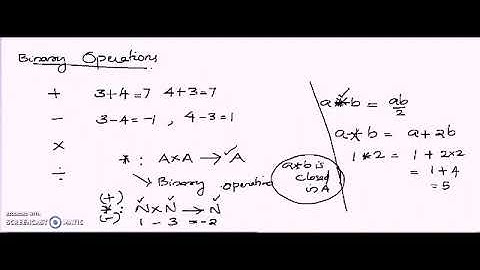 Binary Operations
+ 3+4=7 4+3=7
- 3-4=-1 , 4-3=1
×
÷
* : A×A → A
Binary operation
a*b is
closed
in A
(+)
* : N×N → N
(-) 1 - 3 = -2
a*b = ab/2
a*b = a+2b
1*2 = 1+2×2
= 1+4
= 5
RECORDED WITH
SCREENCAST MATIC